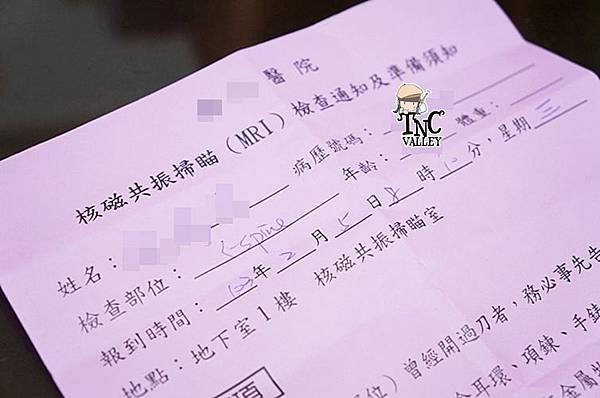 醫院
核磁共振掃瞄（MRI）檢查通知及準備須知
TNC
VALLEY
姓名： 病歷號碼： 體重：
檢查部位： spine 年齡：
報到時間：103年2月5日8時10分，星期三
地點：地下室1樓 核磁共振掃瞄室
項
位）曾經開過刀者，務必事先告
耳環、項鍊、手錶
金屬